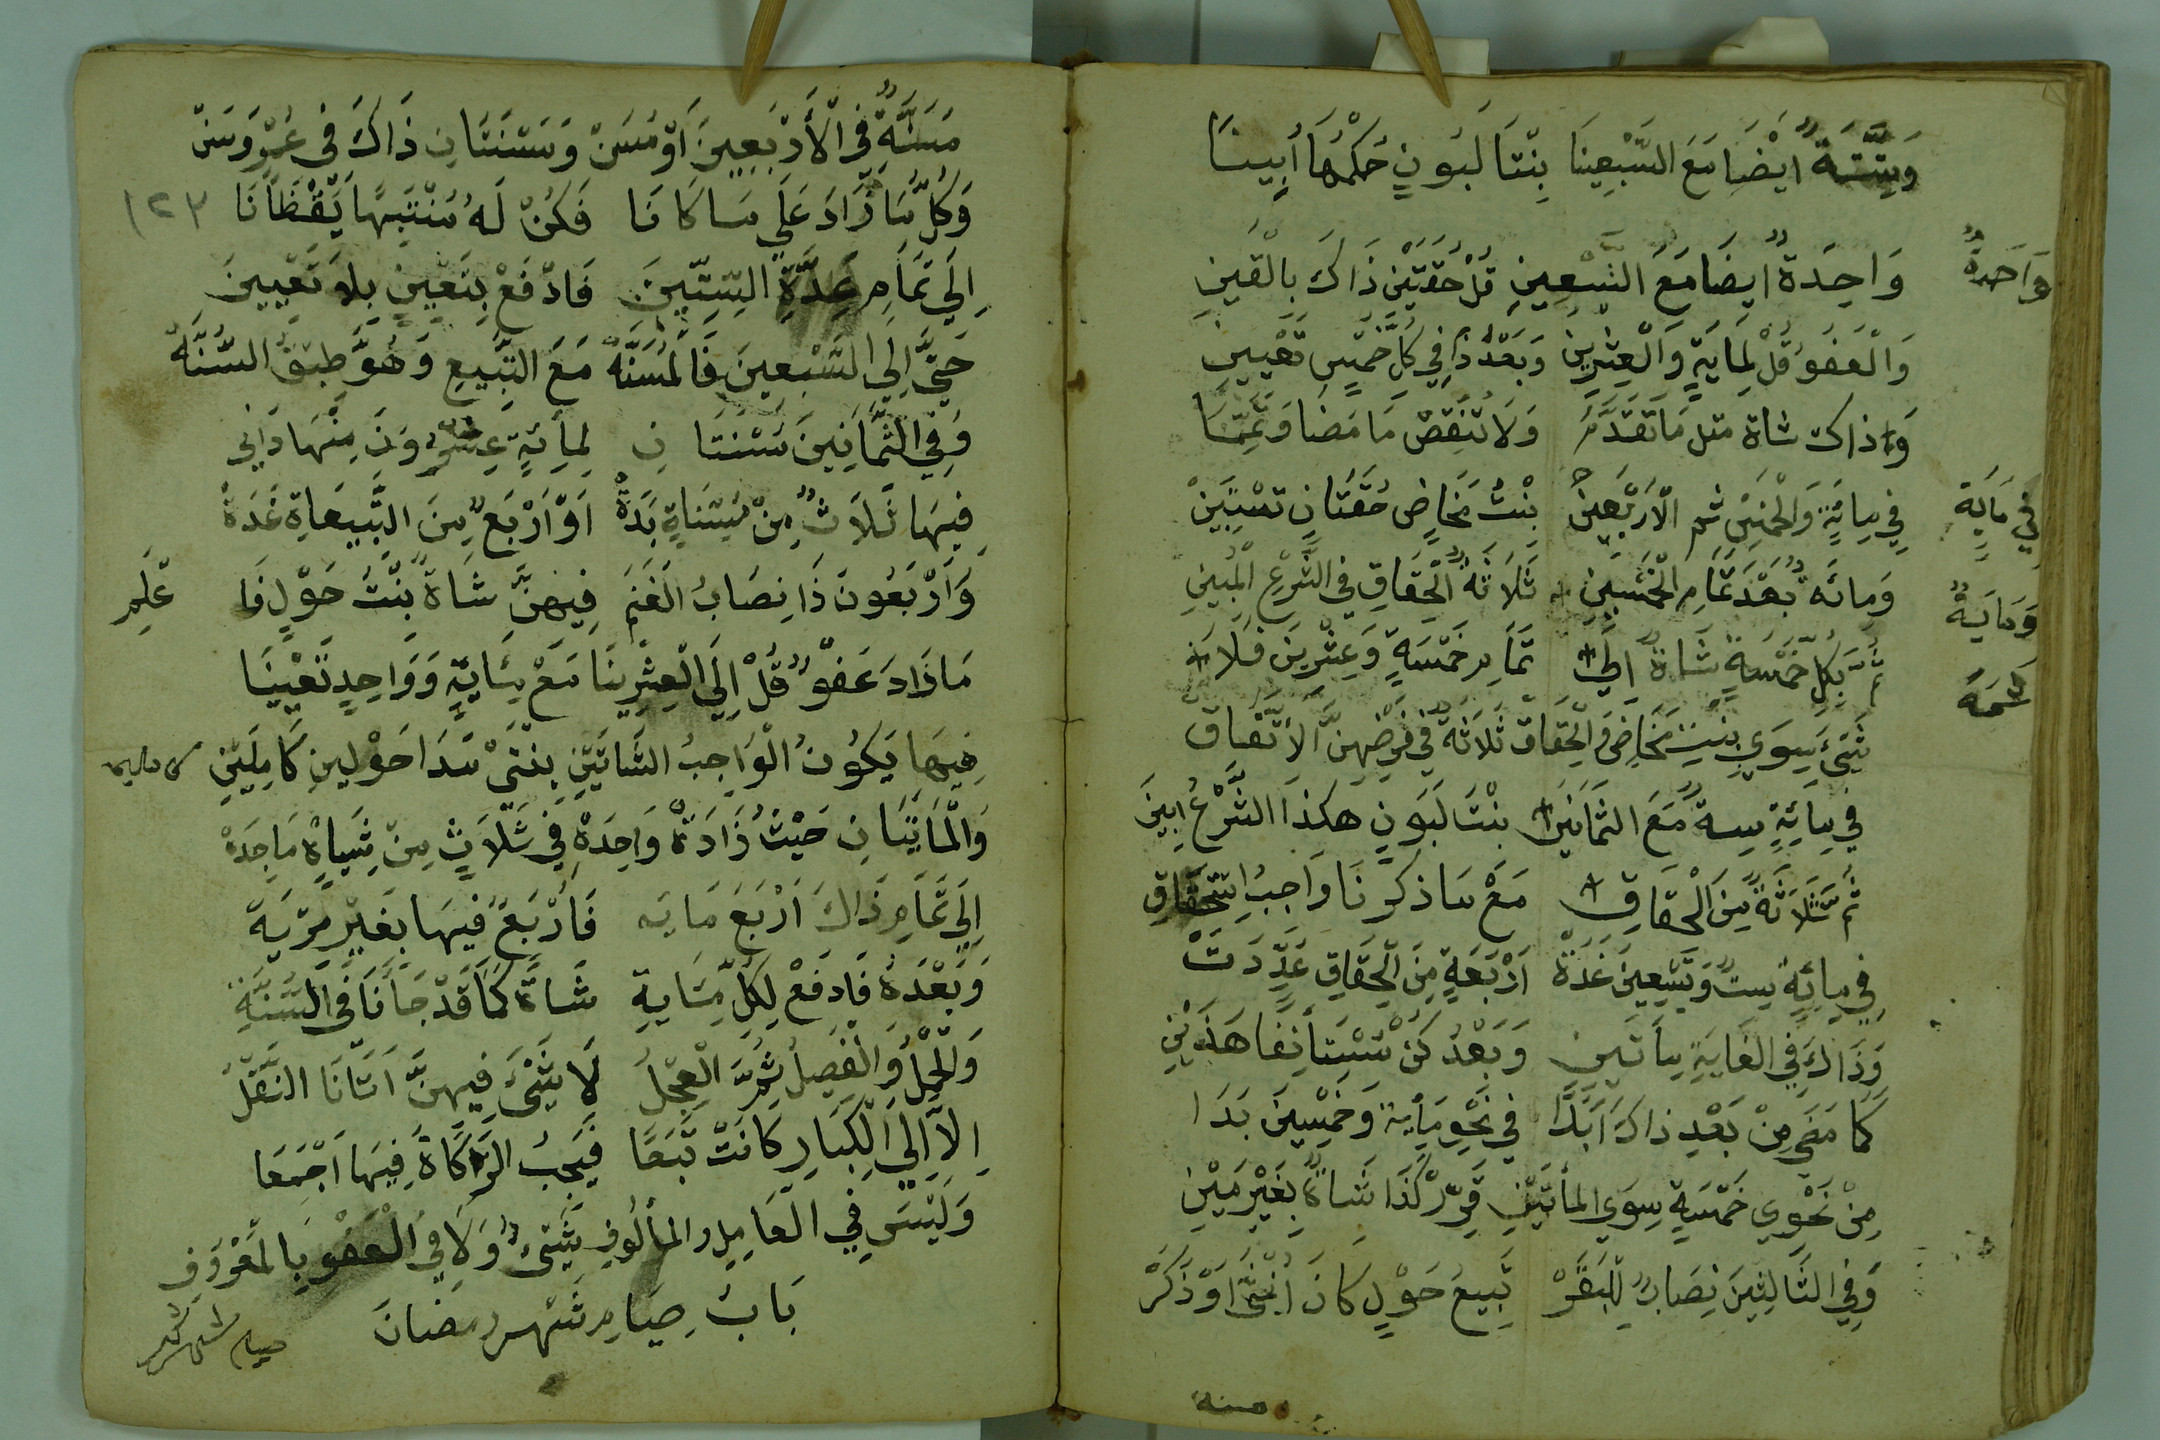 وَسِتَّةٌ اَيْضَا مَعَ السَّبْعِينَا بِنْتَا لَبُونٍ حُكْمُهَا اُبِينَا
وَاحِدَةٌ
وَاحِدَةٌ ايضَا مَعَ التِّسْعِينِ قُلْ حُقَّتَيْنِ ذَاكَ بِالْقَينِ
وَالْعَفْوُ قُلْ لِمَايَةٍ وَالْعِشْرِينِ وَبَعْدُ ذَا فِي كُلِّ خَمْسٍ تَعْيِينِ
ذاك شاة مثل مَا تَقَدَّمَ وَلَا تُنْقِصْ مَا مَضَا وَتَمِّمَا
فِي مِائَةٍ وَالْخَمْسِ ثم الْاَرْبَعِينْ بِنْتُ مَخَاضٍ حُقَّتَانِ تَسْتَبِينْ
فِي مَايَة
وَمِائَة بَعْدَ تَمَامِ الْخَمْسِينِ ثَلَاثَةُ الْحِقَاقِ فِي الشَّرْعِ الْمُبِينِ
وَمَايَةٌ
ثُمَّ بِكُلِّ خَمْسَةٍ شَاةٌ اِلَي تَمَامِ خَمْسَةٍ وَعِشْرِينَ فَلَا
شَيْئَ سِوَي بِنْتِ مَخَاضٍ وَالْحِقَاقْ ثَلَاثَةٌ فِي فَرْضِهِنَّ الْاتِّفَاقْ
فِي مِائَةٍ سِتَةٌ مَعَ الثَمَانِينَ بِنْتَ لَبُونٍ هكذا الشَّرْعُ اُبِينَ
ثُمَّ ثَلَاثَةً مِنَ الْحِقَاقِ مَعْ مَا ذكرنَا وَاجِبُ اِسْتِحْقَاقِ
فِي مِائَةٍ سِتٌ وَتِسْعِينَ غَدَةْ اَرْبَعَةٍ مِنَ الْحِقَاقِ عُدِّدَتْ
وَذَاكَ فِي الغَايَةِ مِأتَينِ وَبَعْدُ كُنْ مُسْتَأنِفًا هَذَيْنِ
كَمَا مَضَي مِنْ بَعْدِ ذاكَ اَبَدًا فِي نَحْوِ مِأيةٍ وَخَمْسِينَ بَدَا
مِنْ نَحْوِي خَمْسَةٍ سِوَي المأتَيْنِ قَرِّرْ كَذَا شَاةً بِغَيْرِ مَيْنِ
وَفِي الثَّالِثِينَ نِصَابٌ لِلْبَقَرْ تَبِيعُ حَوْلٍ كَانَ اُنْثَي اَوْ ذَكَرْ
مسنة
مُسَنَّةٌ فِي الْأَرْبَعِينَ اَوْ مُسَنْ وَمُسْنَتَانِ ذَاكَ فِي عُرْوَ سَنْ
وَكُلُّ مَا زَادَ عَلَي مَا كَانَا فَكُنْ لَهُ مُنْتَبِهًا يَقْظَانَا
١٢٣
اِلَي تَمَامِ عِدَّةِ السِّتِّينَ فَادْفَعْ بِتَعْيِينٍ بِلَا تَعْيِينَ
حَتَّي اِلَي السَّبْعِينَ فَالْمُسَنَّهْ مَعَ التَّبِيعِ وَهُوَّ طِبْقُ السُّنَّهْ
وَفِي الثَّمَانِينَ مُسْنَتَانِ لِمِأئَةٍ عِشْرُونَ مِنْهَا دَانِي
فِيهَا ثَلَاثٌ مِنْ مُسْنَاةٍ بَدَةْ اَوْ اَرْبَعٌ مِنَ التَّبِيعَاةِ غَدَةْ
وَاَرْبَعُونَ ذَا نِصَابُ الْغَنَمِ فِيهِنَّ شَاةٌ بِنْتُ حَوْلٍ فَا عْلَمِ
مَا زَادَ عَفْوٌ قُلْ اِلَي الْعِشْرِينَا مَعْ مِئَايَةٍ وَوَاحِدٍ تَعْيِينَا
فِيهَا يَكُونُ الْوَاجِبُ الشَّاتَيْنِ بِنْتَيْ سَدَا حَوْلَينِ كَامِلَيْنِ
وَالْمَايَتَانِ حَيْثُ زَادَةْ وَاحِدَةْ فِي ثَلَاثٍ مِنْ شِيَاةٍ مَاجِدَةْ
اِلَي تَمَامِ ذَاكَ اَرْبَعَ مَايَه فَأرْبَعٌ فِيهَا بِغَيْرِ مِرْيَةْ
وَبَعْدَهُ فَادْفَعْ لِكُلِّ مِئَايةِ شَاةً كَمَا قَدْ جَأنَا فِي السُّنَّةِ
وَالْحَمْلُ وَالْفَصِيلُ ثُمَّ الْعِجْلُ لَا شَيْئَ فِيهِنَّ اَتَانَا النَّقْلُ
اِلَّا اِلَي الْكِبَارِ كَانَتْ تَبَعَا فَيَجِبُ الزَّكَاةُ فِيهَا اَجْمَعَا
وَلَيْسَ فِي الْعَامِلِ والمأْلُوفِ شَيْئٌ وَلَا فِي الْعَفْوِ بِالْمَعْرُوفِ
بَابُ صِيَامِ شَهْرِ رمضانَ